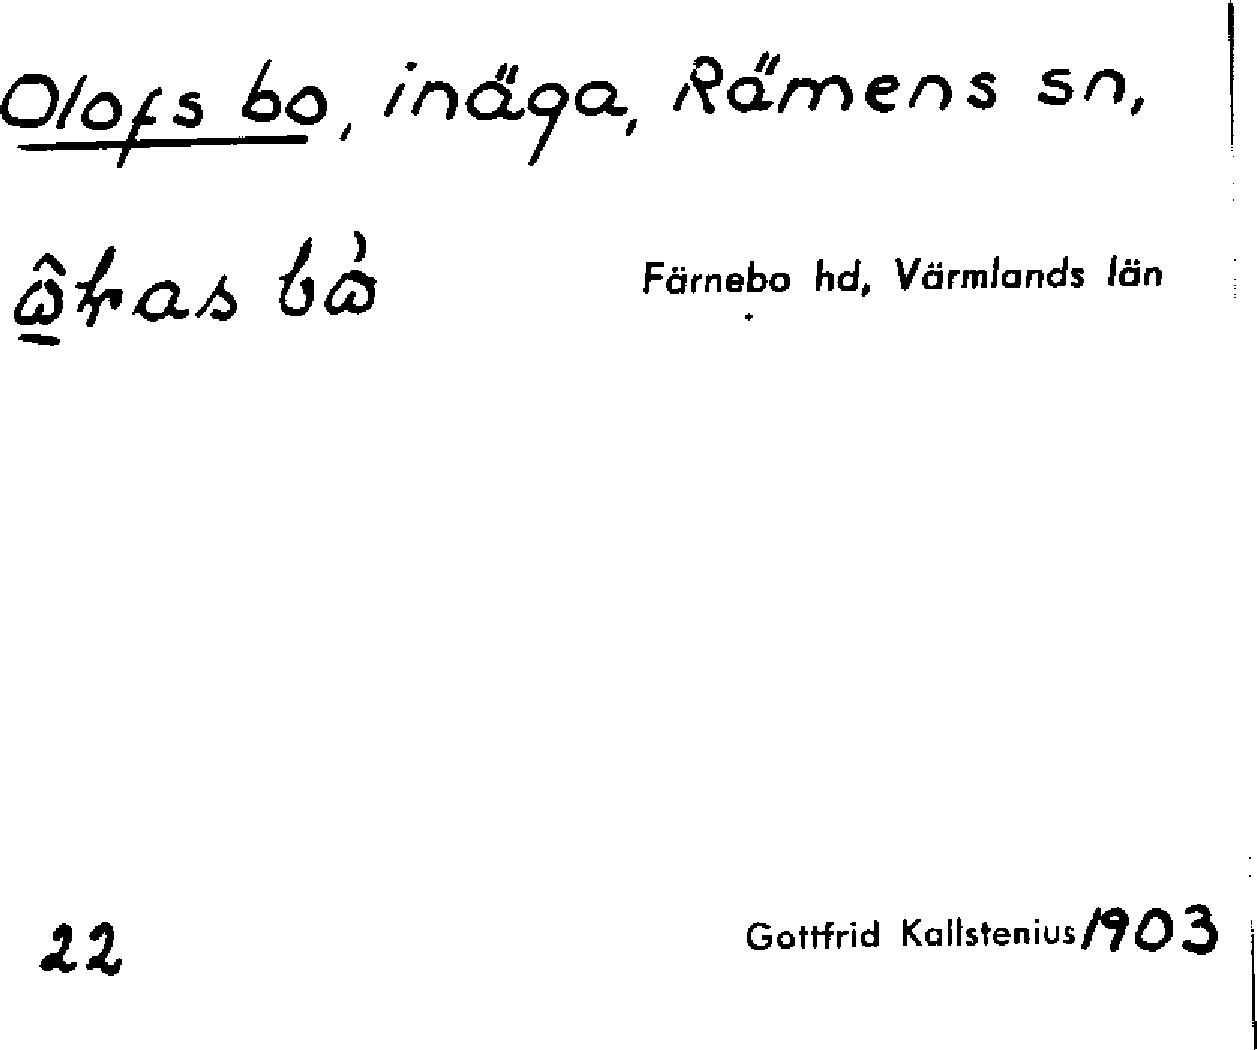 Olofs bo, inäga, Rämens sn,
Färnebo hd, Värmlands län
22
Gottfrid Kallstenius 1903